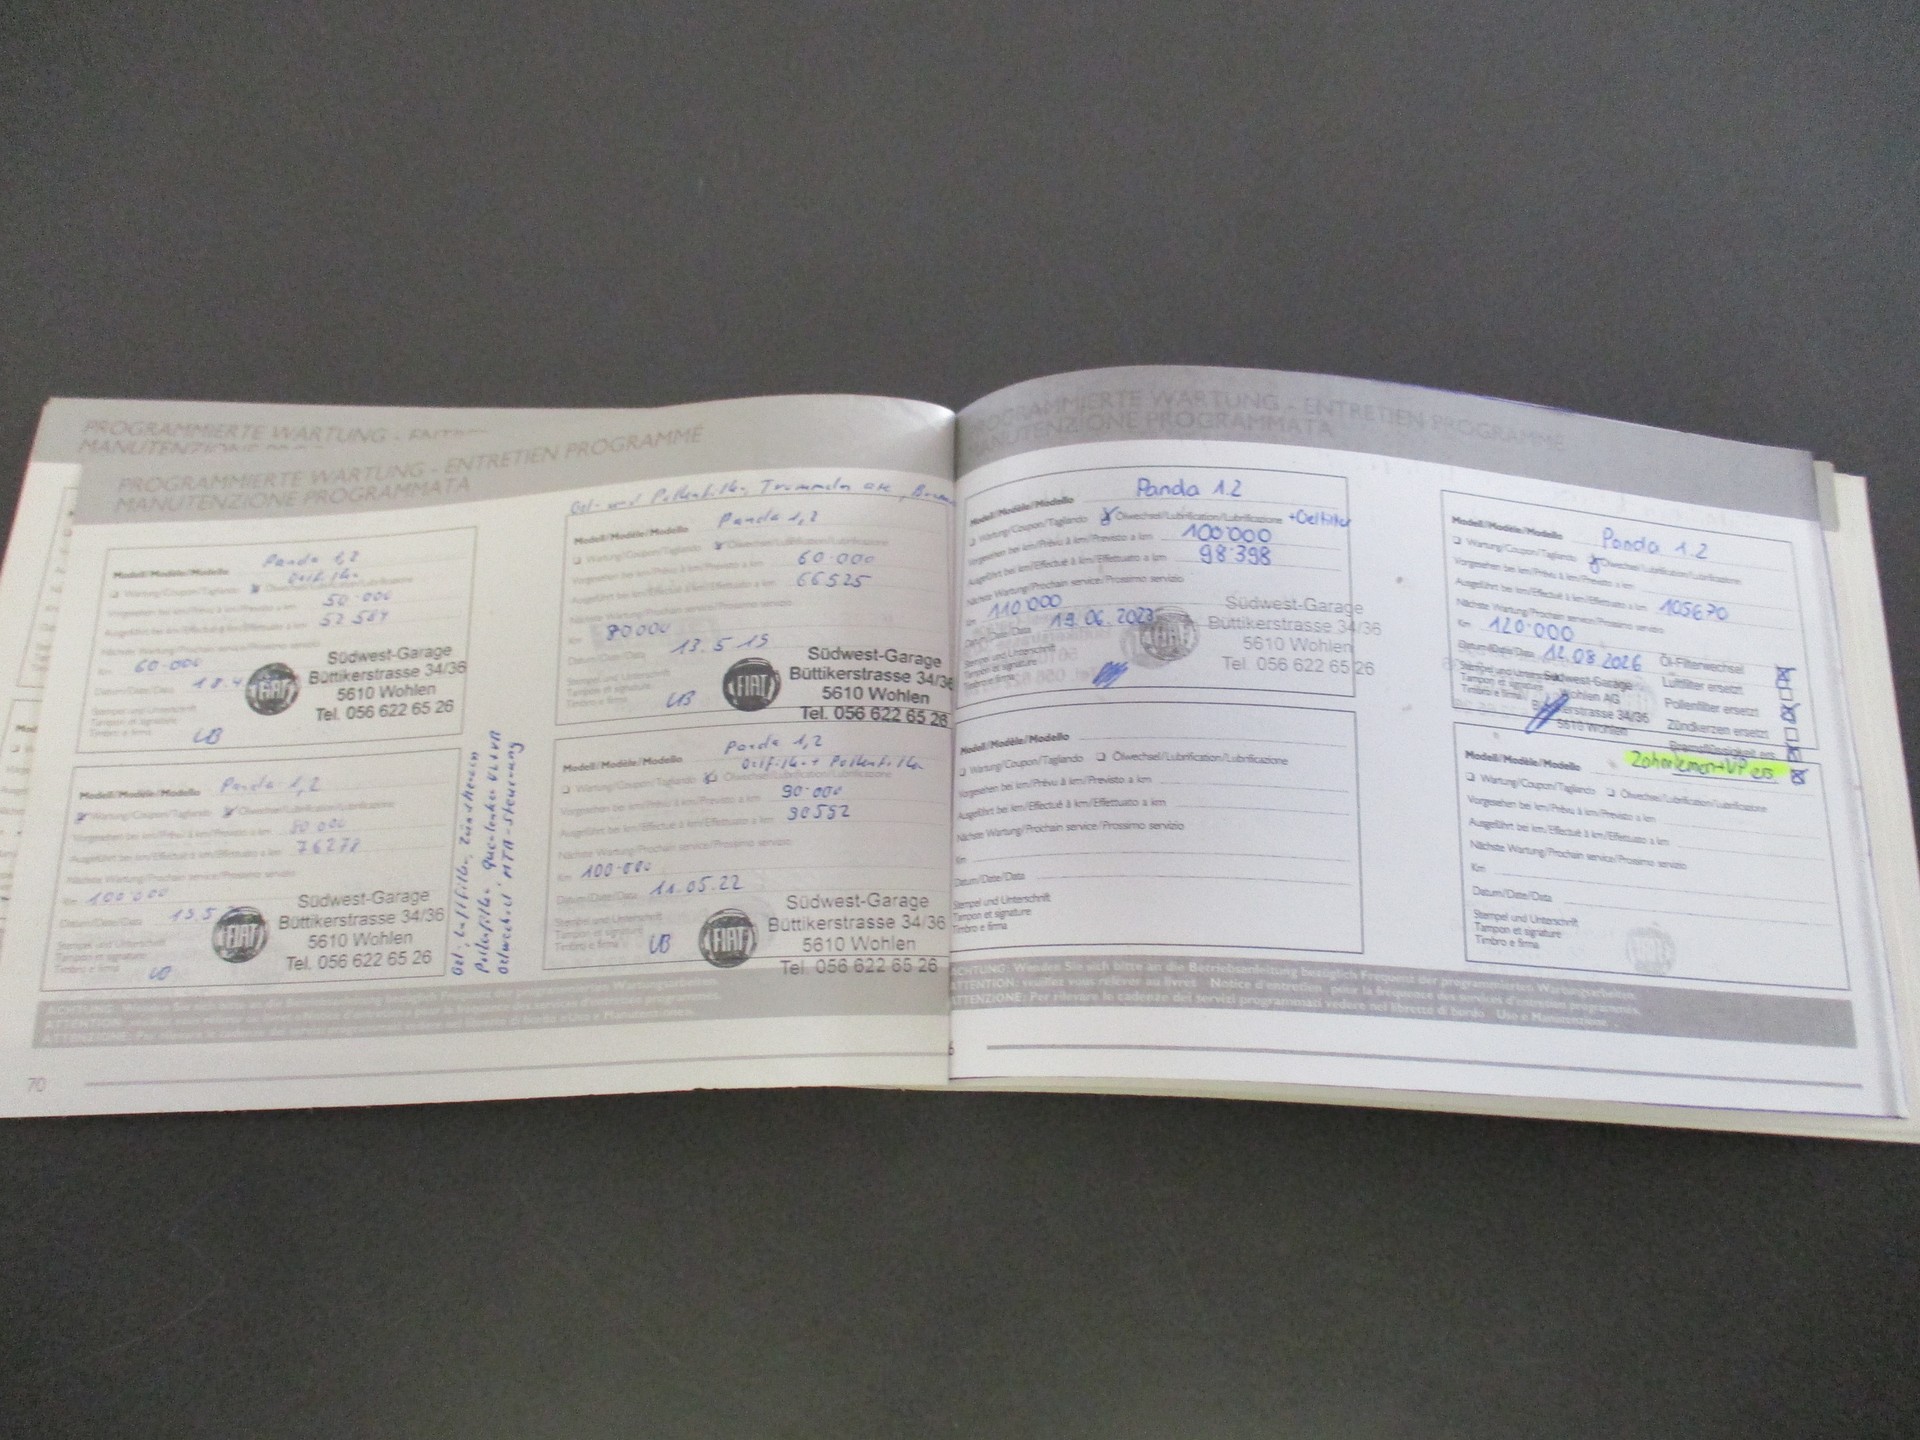 PROGRAMMIERTE WARTUNG -
MANUTENZIONE
PROGRAMMIERTE WARTUNG - ENTRETIEN PROGRAMME
MANUTENZIONE PROGRAMMATA
Modell/Modèle/Modello Panda 1,2
Oelfilter
Wartung/Coupon/Tagliando Ölwechsel/Lubrification/Lubrificazione
Vorgesehen bei km/Prévu à km/Previsto a km 50·000
Ausgeführt bei km/Effectué à km/Effettuato a km
Nächste Wartung/Prochain service/Prossimo servizio
Km 60·000
Datum/Date/Data 18.4
Stempel und Unterschrift
Tampon et signature
Timbro e firma
FIAT
Südwest-Garage
Büttikerstrasse 34/36
5610 Wohlen
Tel. 056 622 65 26
Modell/Modèle/Modello Panda 1,2
Wartung/Coupon/Tagliando Ölwechsel/Lubrification/Lubrificazione
Vorgesehen bei km/Prévu à km/Previsto a km
Ausgeführt bei km/Effectué à km/Effettuato a km 76278
Nächste Wartung/Prochain service/Prossimo servizio
Km 100·000
Datum/Date/Data 13.5
Stempel und Unterschrift
Tampon et signature
Timbro e firma
FIAT
Südwest-Garage
Büttikerstrasse 34/36
5610 Wohlen
Tel. 056 622 65 26
Oel-, Luftfilter, Zündkerzen
Pollenfilter Querlenker VL+VR
Oelwechsel MTA-Steuerung
Oel- und Pollenfilter, Trommeln
Modell/Modèle/Modello Panda 1,2
Wartung/Coupon/Tagliando Ölwechsel/Lubrification/Lubrificazione
Vorgesehen bei km/Prévu à km/Previsto a km 60·000
Ausgeführt bei km/Effectué à km/Effettuato a km 66525
Nächste Wartung/Prochain service/Prossimo servizio
Km 80000
Datum/Date/Data 13.5.19
Stempel und Unterschrift
Tampon et signature
Timbro e firma
FIAT
Südwest-Garage
Büttikerstrasse 34/36
5610 Wohlen
Tel. 056 622 65 26
Modell/Modèle/Modello Panda 1,2
Oelfilter + Pollenfilter
Wartung/Coupon/Tagliando Ölwechsel/Lubrification/Lubrificazione
Vorgesehen bei km/Prévu à km/Previsto a km 90·000
Ausgeführt bei km/Effectué à km/Effettuato a km 90552
Nächste Wartung/Prochain service/Prossimo servizio
Km 100·000
Datum/Date/Data 11.05.22
Stempel und Unterschrift
Tampon et signature
Timbro e firma
FIAT
Südwest-Garage
Büttikerstrasse 34/36
5610 Wohlen
Tel. 056 622 65 26
ACHTUNG: Wenden Sie sich bitte an die Betriebsanleitung bezüglich Frequenz der programmierten Wartungsarbeiten.
ATTENTION: veuillez vous référer au livret «Notice d'entretien» pour la fréquence des services d'entretien programmés.
ATTENZIONE: Per rilevare le cadenze dei servizi programmati vedere nel libretto di bordo «Uso e Manutenzione».
70
PROGRAMMIERTE WARTUNG - ENTRETIEN PROGRAMME
MANUTENZIONE PROGRAMMATA
Modell/Modèle/Modello Panda 1.2
Wartung/Coupon/Tagliando Ölwechsel/Lubrification/Lubrificazione +Oelfilter
Vorgesehen bei km/Prévu à km/Previsto a km 100'000
Ausgeführt bei km/Effectué à km/Effettuato a km 98'398
Nächste Wartung/Prochain service/Prossimo servizio
Km 110'000
Datum/Date/Data 19.06.2023
Stempel und Unterschrift
Tampon et signature
Timbro e firma
FIAT
Südwest-Garage
Büttikerstrasse 34/36
5610 Wohlen
Tel. 056 622 65 26
Modell/Modèle/Modello
Wartung/Coupon/Tagliando Ölwechsel/Lubrification/Lubrificazione
Vorgesehen bei km/Prévu à km/Previsto a km
Ausgeführt bei km/Effectué à km/Effettuato a km
Nächste Wartung/Prochain service/Prossimo servizio
Km
Datum/Date/Data
Stempel und Unterschrift
Tampon et signature
Timbro e firma
Modell/Modèle/Modello Panda 1.2
Wartung/Coupon/Tagliando Ölwechsel/Lubrification/Lubrificazione
Vorgesehen bei km/Prévu à km/Previsto a km
Ausgeführt bei km/Effectué à km/Effettuato a km 105670
Nächste Wartung/Prochain service/Prossimo servizio
Km 120'000
Datum/Date/Data 12.08.2026
Stempel und Unterschrift
Tampon et signature
Timbro e firma
Südwest-Garage
Wohlen AG
Büttikerstrasse 34/36
5610 Wohlen
Öl-Filterwechsel
Luftfilter ersetzt
Pollenfilter ersetzt
Zündkerzen ersetzt
Bremsflüssigkeit ers.
Zahnriemen+WP ers
Modell/Modèle/Modello
Wartung/Coupon/Tagliando Ölwechsel/Lubrification/Lubrificazione
Vorgesehen bei km/Prévu à km/Previsto a km
Ausgeführt bei km/Effectué à km/Effettuato a km
Nächste Wartung/Prochain service/Prossimo servizio
Km
Datum/Date/Data
Stempel und Unterschrift
Tampon et signature
Timbro e firma
ACHTUNG: Wenden Sie sich bitte an die Betriebsanleitung bezüglich Frequenz der programmierten Wartungsarbeiten.
ATTENTION: veuillez vous référer au livret «Notice d'entretien» pour la fréquence des services d'entretien programmés.
ATTENZIONE: Per rilevare le cadenze dei servizi programmati vedere nel libretto di bordo «Uso e Manutenzione».
6